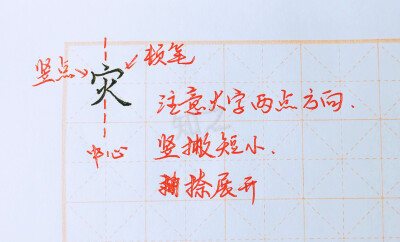 竖点
顿笔
灾
中心
注意火字两点方向.
竖撇短小.
捺展开